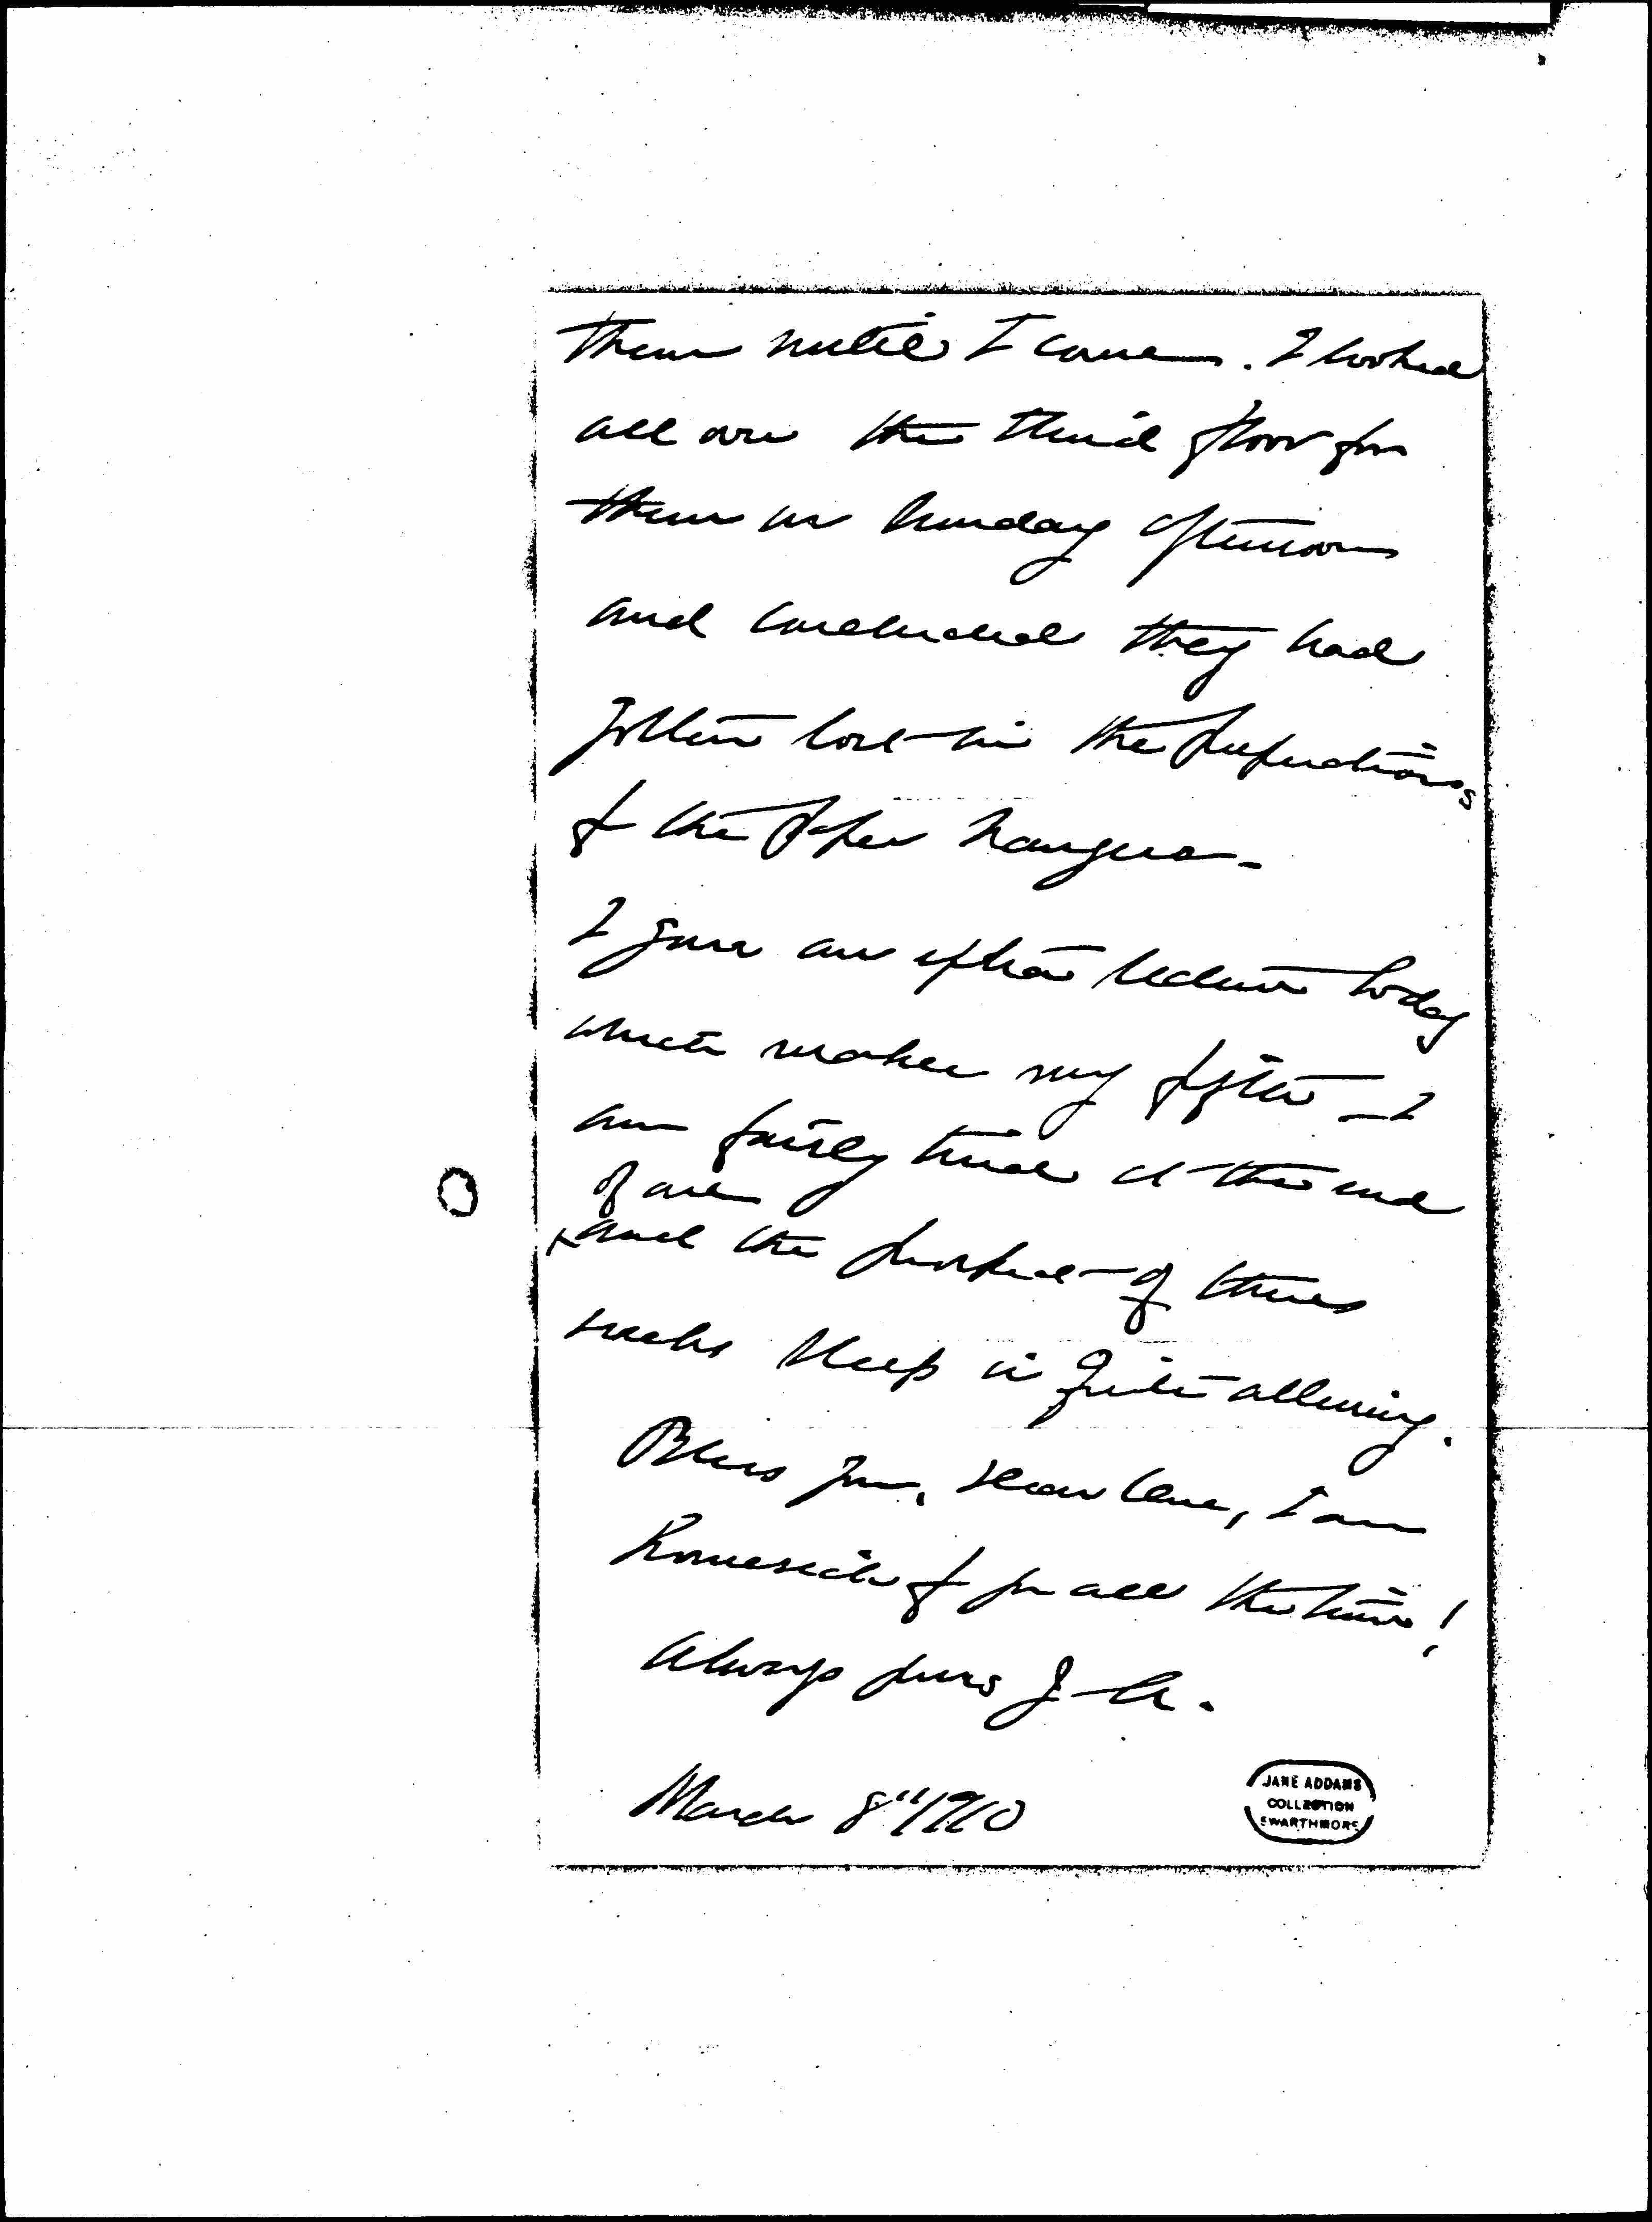 them until I come. I looked
all over the third floor for
them on Sunday afternoon
and concluded they had
gotten lost in the preparations
of the paper hangers -
I gave an extra lecture today
which makes my fifth - I
am fairly tired at the end
of all
and the prospect of three
weeks sleep is quite alluring.
Bless you, dear one, I am
homesick for you all the time!
Always yours J. A.
March 8" 1910
JANE ADDAMS
COLLECTION
SWARTHMORE